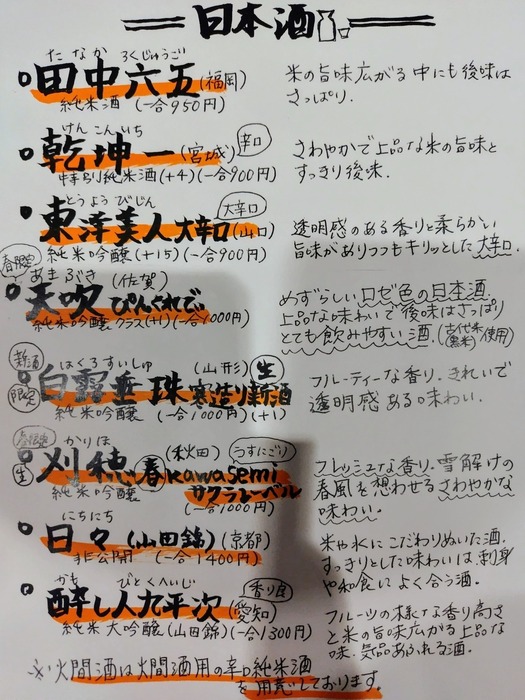 日本酒
たなか ろくじゅうご
田中六五 (福岡)
純米酒 (一合950円)
米の旨味広がる中にも後味は
さっぱり.
けんこんいち
乾坤一 (宮城) 辛口
純米酒(+4)(一合900円)
さわやかで上品な米の旨味と
すっきり後味.
とうようびじん 大辛口
東洋美人大辛口(山口)
純米吟醸(+15)(一合900円)
透明感のある香りと柔らかい
旨味がありつつもキリッとした大辛口.
春限定 あまぶき (佐賀)
天吹 ぴんくれでぃ
純米吟醸 (+1)(一合1000円)
めずらしいロゼ色の日本酒.
上品な味わいで後味はさっぱり
とても飲みやすい酒.(古代米(黒米)使用)
新酒 はくろすいしゅ (山形) 生
限定 白露垂珠 寒造り新酒
純米吟醸 (一合1000円)(+1)
フルーティーな香り.きれいで
透明感ある味わい.
かりほ (秋田) うすにごり
生 刈穂 春kawasemi
サクラレーベル
純米吟醸 (一合1000円)
フレッシュな香り.雪解けの
春風を想わせるさわやかな
味わい.
にちにち
日々(山田錦)(京都)
非公開 (一合1400円)
米や水にこだわりぬいた酒.
すっきりとした味わいは刺身
や和食によく合う酒.
かも びとくへいじ 香り良
醸し人九平次 (愛知)
純米大吟醸(山田錦)(一合1300円)
フルーツの様な香り高さ
と米の旨味広がる上品な
味.気品あふれる酒.
※火間酒は火間酒用の辛口純米酒
を用意しております